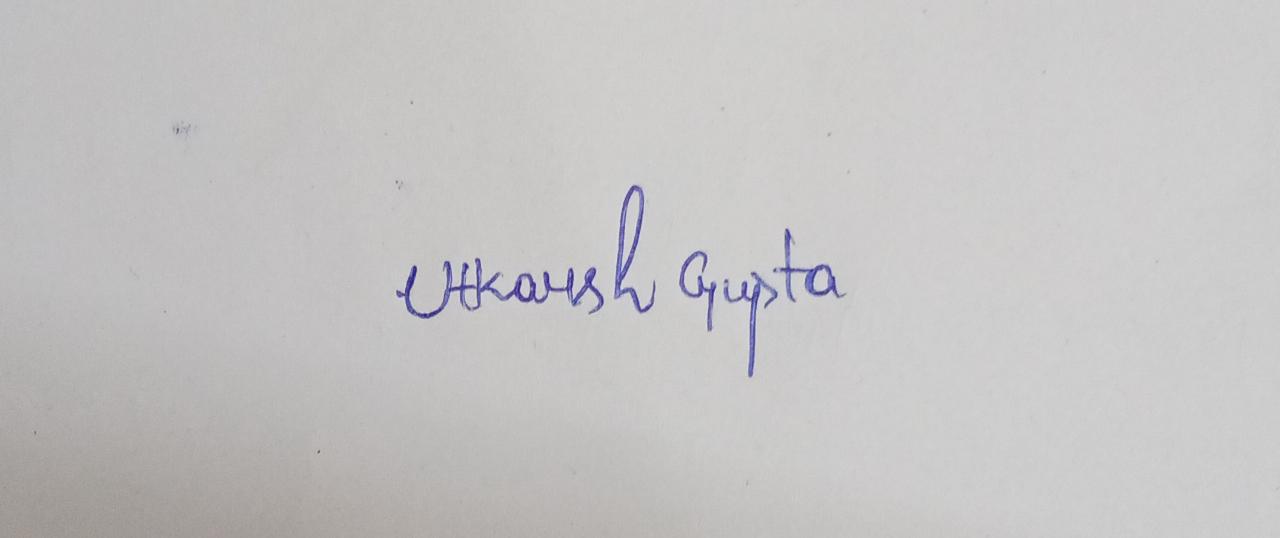 Utkarsh Gupta